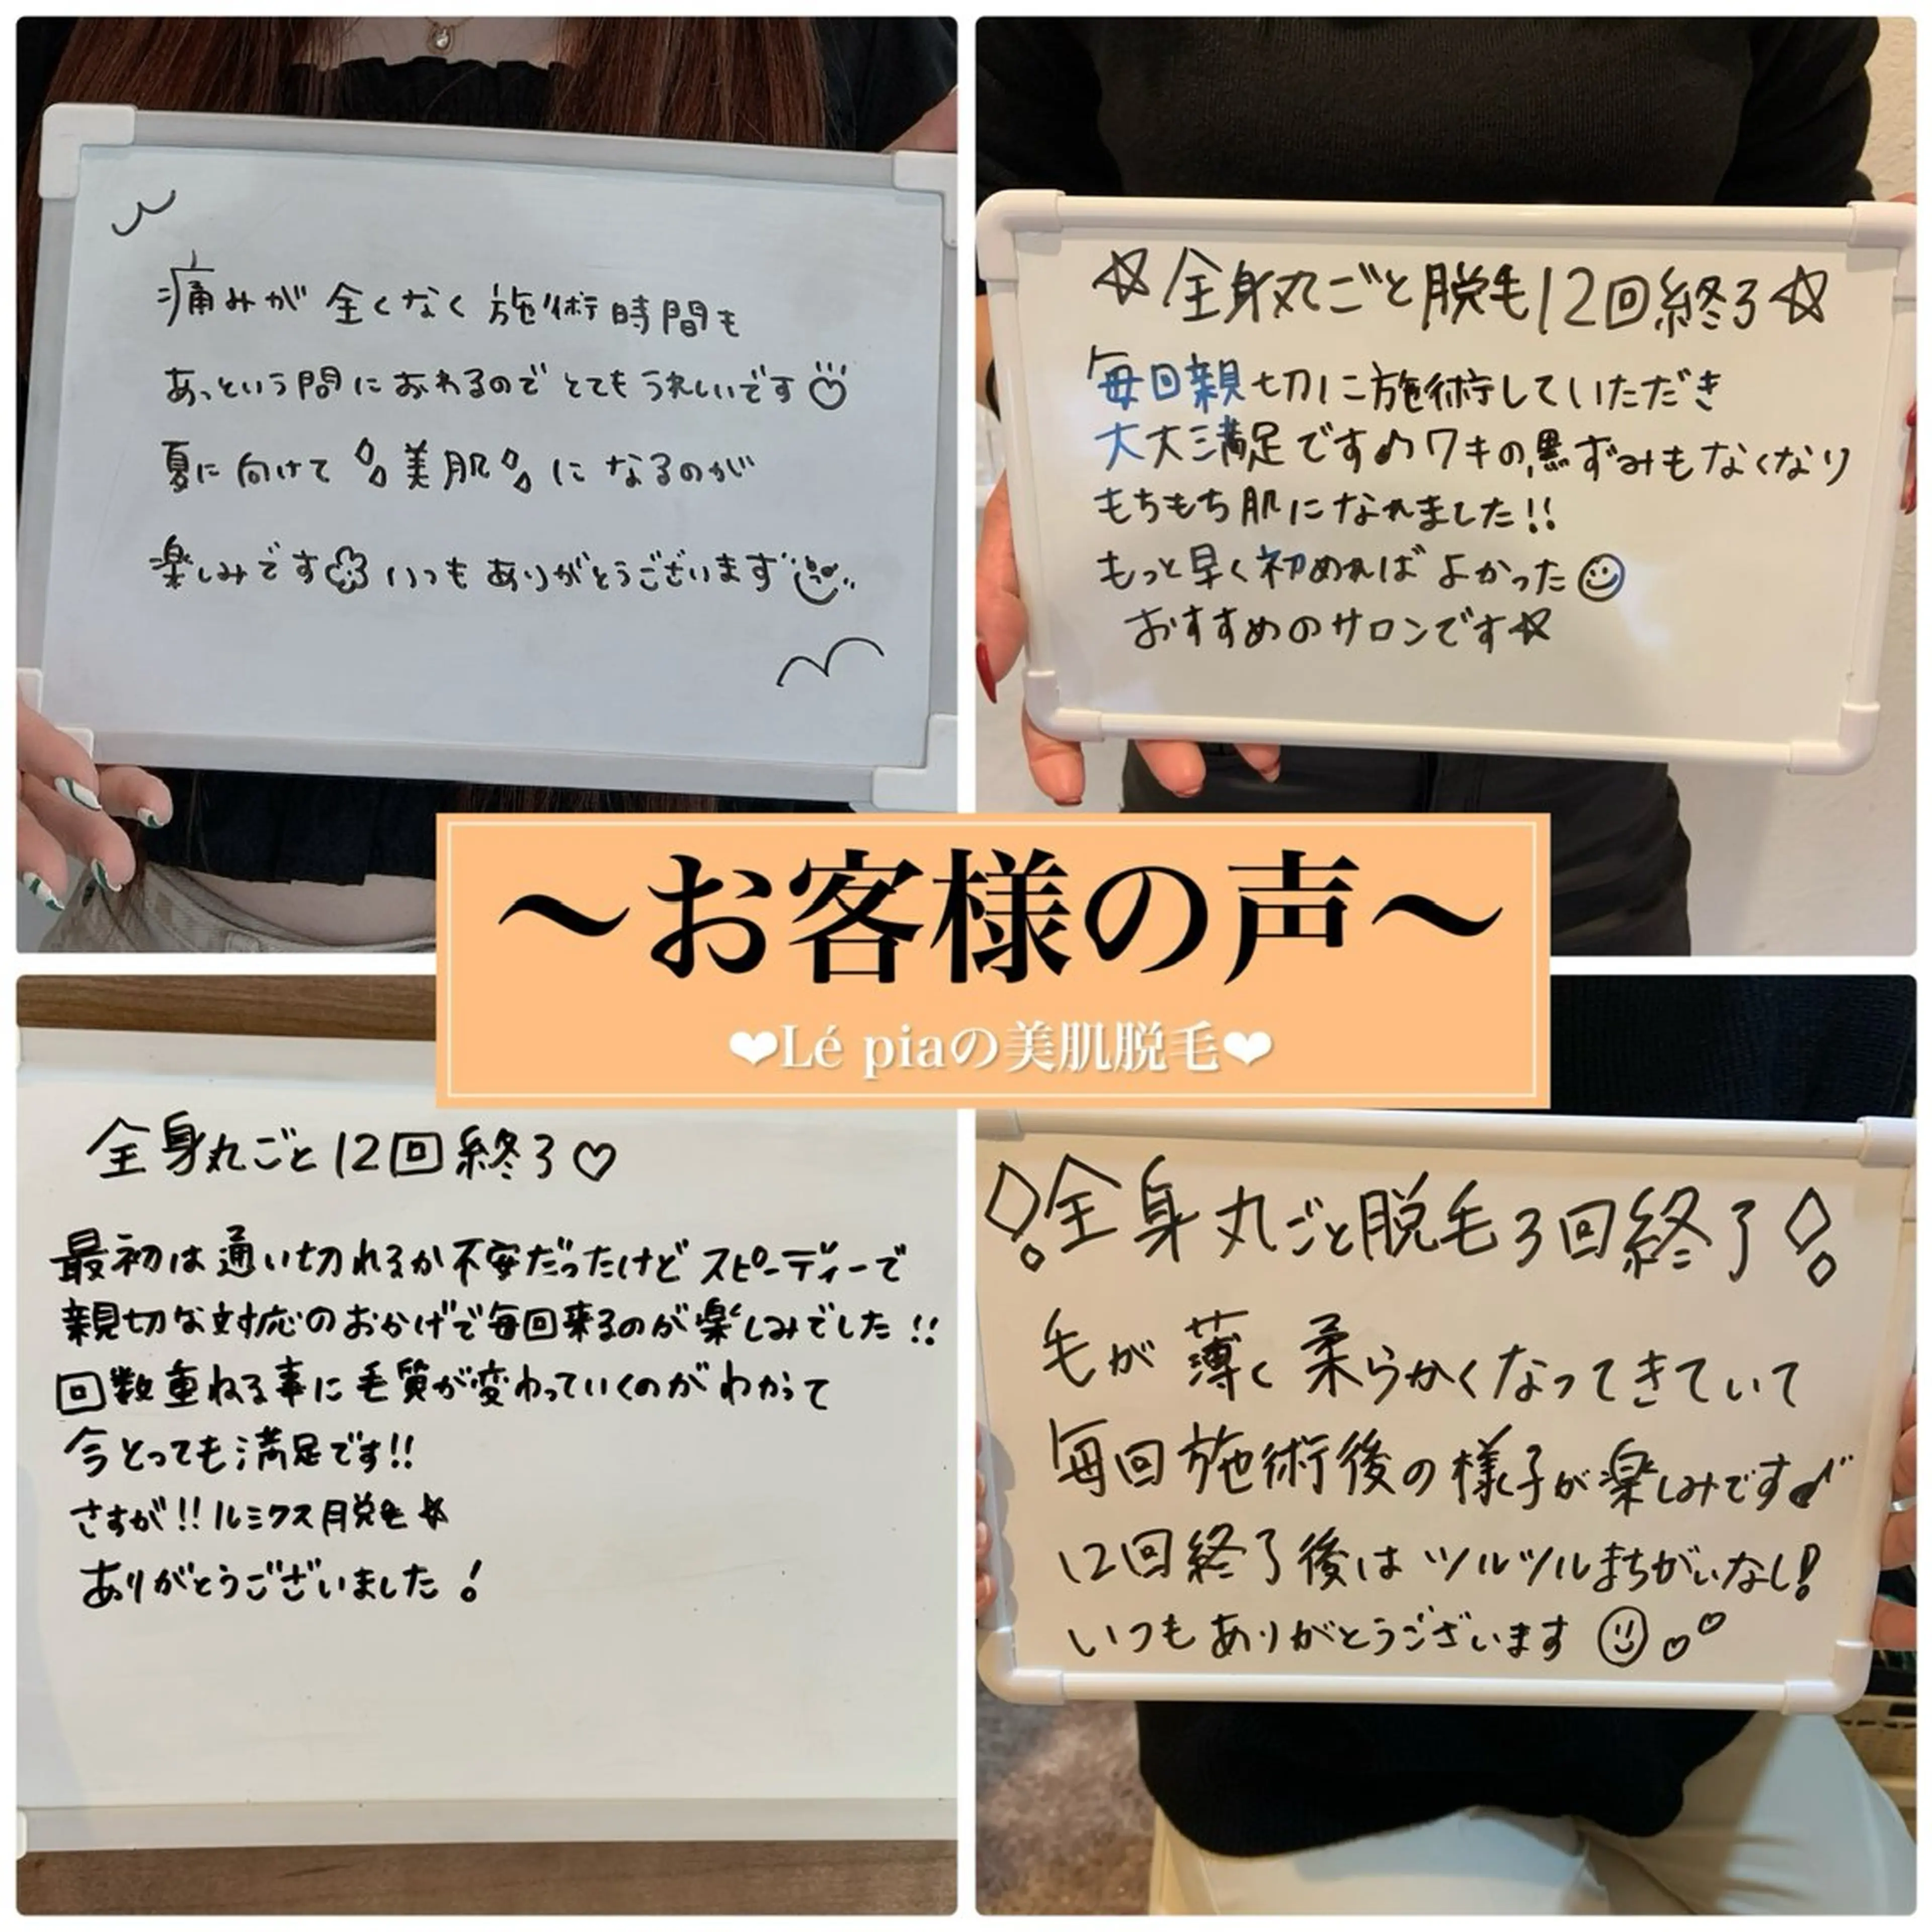 痛みが全くなく施術時間も
あっという間におわるのでとてもうれしいです♡
夏に向けて美肌になるのが
楽しみです いつもありがとうございます
☆全身丸ごと脱毛12回終了☆
毎回親切に施術していただき
大大満足です♪ワキの黒ずみもなくなり
もちもち肌になれました!!
もっと早く初めればよかった☺
おすすめのサロンです☆
〜お客様の声〜
❤Lé piaの美肌脱毛❤
全身丸ごと12回終了♡
最初は通い切れるか不安だったけどスピーディーで
親切な対応のおかげで毎回来るのが楽しみでした!!
回数重ねる事に毛質が変わっていくのがわかって
今とっても満足です!!
さすが!!ルミクス脱毛☆
ありがとうございました!
全身丸ごと脱毛3回終了
毛が薄く柔らかくなってきていて
毎回施術後の様子が楽しみです♪
12回終了後はツルツルまちがいなし!
いつもありがとうございます☺♡♡